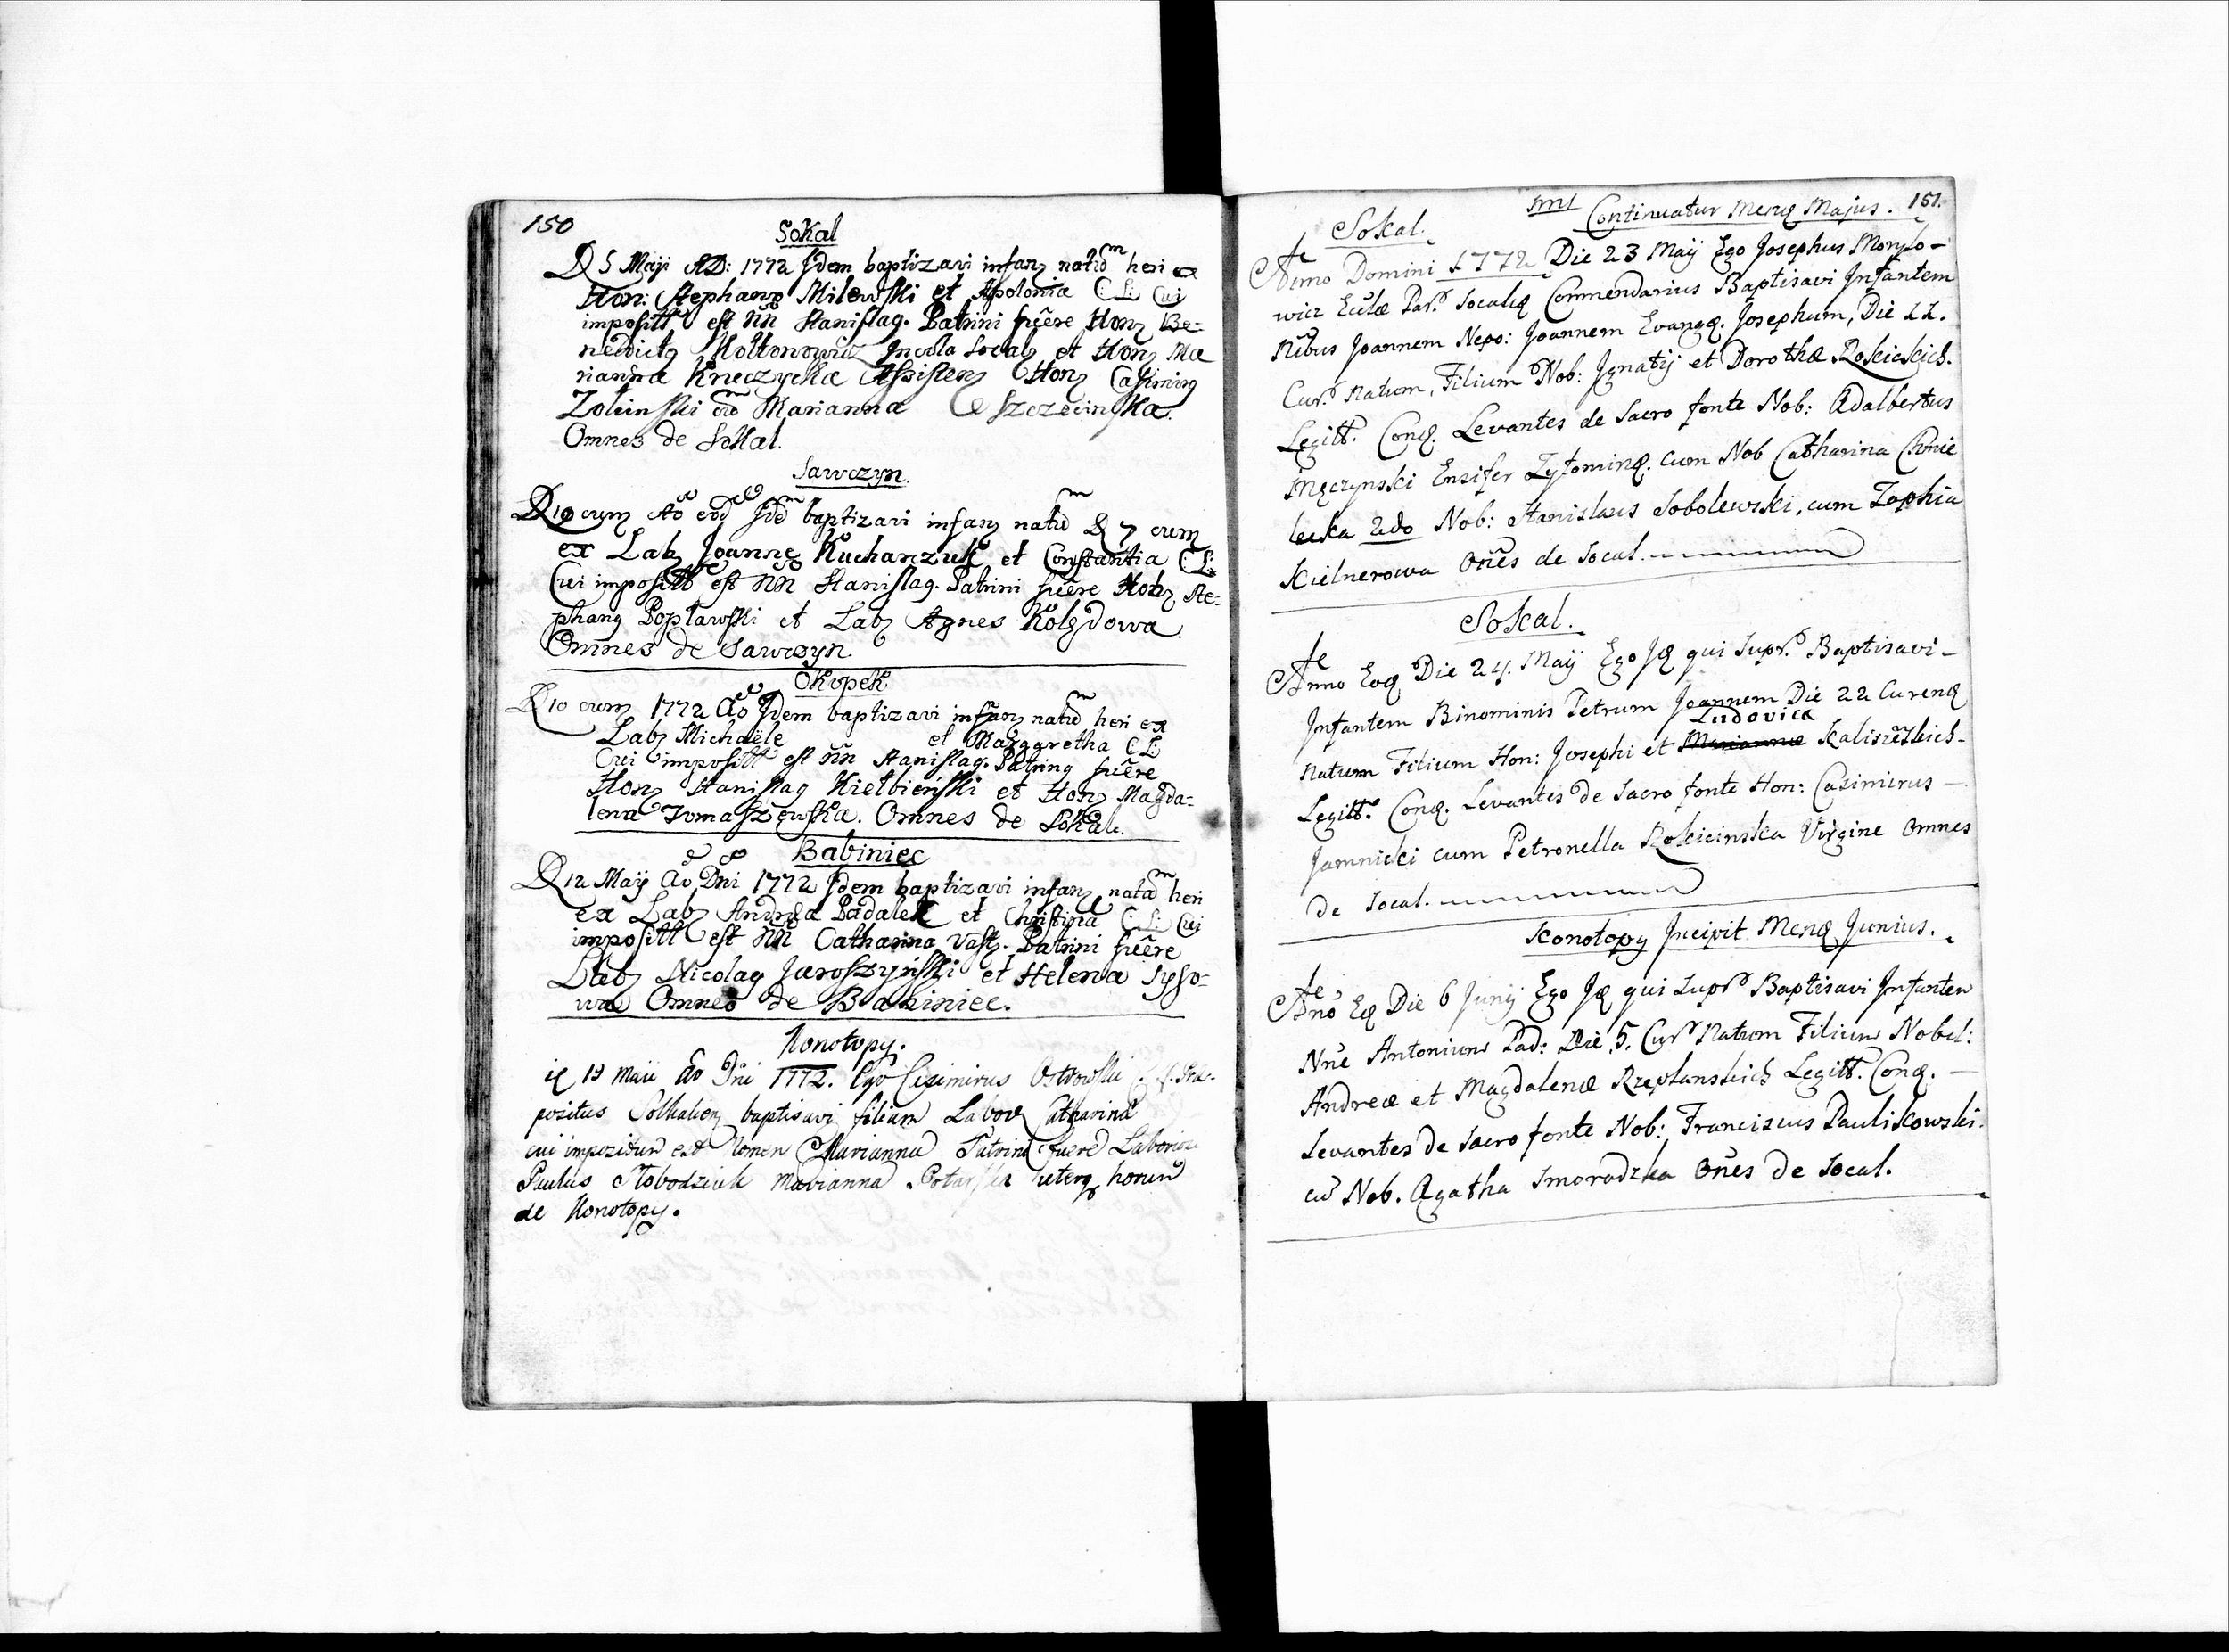 150
Sokal
D 5 Maji AD: 1772 Jdem baptizavi infanz natū heri ex
Hon: Stephanꝰ Milewski et Apolonia C: L: Cui
impositū est nn Stanislaꝰ. Patrini fuēre Honz Be-
nedictꝰ Incola Socalz et Honz Ma
rianna Kneczycka Assistenz Honz Casimirꝰ
Zolinski cū Marianna Szczecinska.
Omnes de Sokal.
Sawczyn.
D 10 cumz Ao eod Jdē baptizavi infanz natū D 7 cumz
ex Labz Joanne Kucharczuk et Constantia C L:
Cui impositū est nn Stanislaꝰ. Patrini fuēre Honz Ste-
phanꝰ Poplawski et Labz Agnes Kolędowa.
Omnes de Sawczyn.
Okopek
D 10 cumz 1772 Ao Jdem baptizavi infanz natū heri ex
Labz Michaële et Margaretha C L:
Cui impositū est nn Stanislaꝰ. Patrinꝰ fuēre
Honz Stanislaꝰ Kielbieński et Honz Magda-
lena Tomaszewska. Omnes de Sokal.
Babiniec
D 12 Maij Ao Dni 1772 Jdem baptizavi infanz natā heri
ex Labz Andrea Padalek et Christina C: L: Cui
impositū est nn Catharina Patrini fuēre
Labz Nicolaꝰ Jaroszyński et Helena
Omnes de Babiniec.
Konotopy.
19 Maii Ao Dni 1772. Ego Casimirus Ostrowski
positus baptisavi filiam Catharina
cui impozitum est Nomen Marianna Patrini fuere
Paulus Slobodziuk Marianna uterqꝫ horum
de Konotopy.
Continuatur Mensꝭ Majus. 151.
Sokal.
Anno Domini 1772 Die 23 Maij Ego Josephus Morylo-
wicz Eclæ Par. Socalꝭ Commendarius Baptisavi Infantem
Nībus Joannem Nepo: Joannem Evangꝭ. Josephum, Die 22.
Cur. Natum, Filium Nob: Jgnatij et Dorothæ Rokickich.
Legitt. Conꝭ. Levantes de Sacro fonte Nob: Adalbertus
Męczynski Ensifer Zytominꝭ. cum Nob Catharina Chmie
lecka 2do Nob: Stanislaus Sobolewski, cum Zophia
Kielnerowa Oñes de Socal.
Sokal.
Anno Eoꝭ Die 24. Maij Ego Jꝭ qui Supr. Baptisavi-
Infantem Binominis Petrum Joannem Die 22 Curenꝭ
Ludovica
Natum Filium Hon: Josephi et Mariannæ
Legitt. Conꝭ. Levantes de Sacro fonte Hon: Casimirus -
Jamnicki cum Petronella Rokicinska Virgine Omnes
de Socal.
Konotopy Incipit Mensꝭ Junius.
Anō Eꝭ Die 6 Junij Ego Jꝭ qui Supr Baptisavi Infantem
Nñe Antonium Pad: Die 5. Cur Natum Filium Nobil:
Andreæ et Magdalenæ Rzeplanskich Legitt. Conꝭ. -
Levantes de Sacro fonte Nob: Franciscus Paulikowski.
cū Nob. Agatha Smorodzka Oñes de Socal.